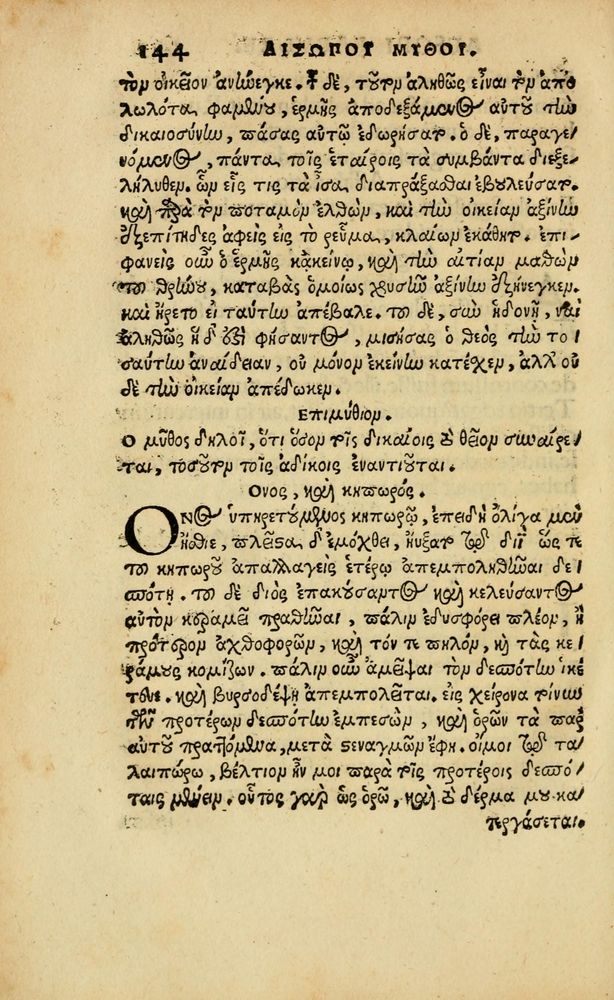 144 ΑΙΣΩΠΟΥ ΜΥΘΟΙ.
τὸν οἰκεῖον ἀνήνεγκε. τοῦ δὲ, τοῦτον ἀληθῶς εἶναι τὸν ἀπο
λωλότα φαμένου, ἑρμῆς ἀποδεξάμενος αὐτοῦ τὴν
δικαιοσύνην, πάσας αὐτῷ ἐδωρήσατο. ὁ δὲ, παραγε
νόμενος, πάντα τοῖς ἑταίροις τὰ συμβάντα διεξε
λήλυθεν. ὧν εἷς τις τὰ ἴσα διαπράξασθαι ἐβουλεύσατο.
καὶ παρὰ τὸν ποταμὸν ἐλθὼν, καὶ τὴν οἰκείαν ἀξίνην
ἐξεπίτηδες ἀφεὶς εἰς τὸ ῥεῦμα, κλαίων ἐκάθητο. ἐπι
φανεὶς οὖν ὁ ἑρμῆς κἀκείνῳ, καὶ τὴν αἰτίαν μαθὼν
τοῦ θρήνου, καταβὰς ὁμοίως χρυσῆν ἀξίνην ἐξήνεγκεν.
καὶ ἤρετο εἰ ταύτην ἀπέβαλε. τοῦ δὲ, σὺν ἡδονῇ, ναὶ
ἀληθῶς ἥδ' ἐστὶ φήσαντος, μισήσας ὁ θεὸς τὴν το
σαύτην ἀναίδειαν, οὐ μόνον ἐκείνην κατέσχεν, ἀλλ' οὐ
δὲ τὴν οἰκείαν ἀπέδωκεν.
ΕΠΙΜΥΘΙΟΝ.
Ο μῦθος δηλοῖ, ὅτι ὅσον τοῖς δικαίοις τὸ θεῖον συναίρε
ται, τοσοῦτον τοῖς ἀδίκοις ἐναντιοῦται.
Ονος, καὶ κηπωρός.
ΟΝος ὑπηρετούμενος κηπωρῷ, ἐπειδὴ ὀλίγα μὲν
ἤσθιε, πλεῖστα δ' ἐμόχθει, ηὔξατο τῷ διῒ ὥς τε
τοῦ κηπωροῦ ἀπαλλαγεὶς ἑτέρῳ ἀπεμποληθῆναι δε
σπότῃ. τοῦ δὲ διὸς ἐπακούσαντος καὶ κελεύσαντος
αὐτὸν κεραμεῖ πραθῆναι, πάλιν ἐδυσφόρει πλέον, ἢ
πρότερον ἀχθοφορῶν, καὶ τόν τε πηλὸν, καὶ τὰς κε
ράμους κομίζων. πάλιν οὖν ἀμεῖψαι τὸν δεσπότην ἱκέ
τευε. καὶ βυρσοδέψῃ ἀπεμπολεῖται. εἰς χείρονα τοίνυν
τῶν προτέρων δεσπότην ἐμπεσὼν, καὶ ὁρῶν τὰ παρ'
αὐτοῦ πραττόμενα, μετὰ στεναγμῶν ἔφη. οἴμοι τῷ τα
λαιπώρῳ, βέλτιον ἦν μοι παρὰ τοῖς προτέροις δεσπό
ταις μένειν. οὗτος γὰρ ὡς ὁρῶ, καὶ τὸ δέρμα μου κα
τεργάσεται.